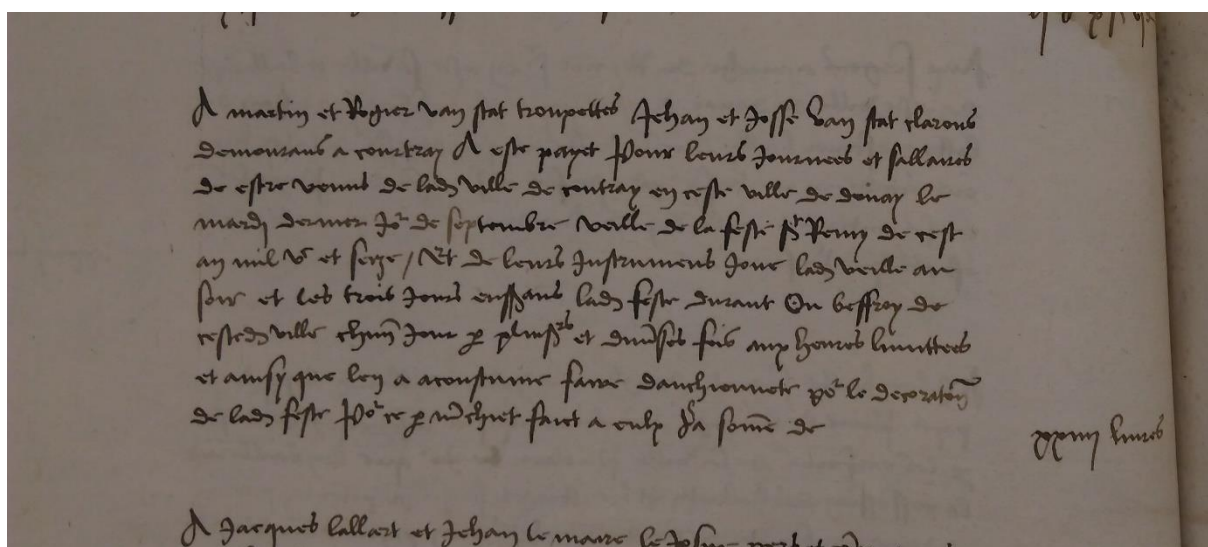 A martin et Rogier van stat trompettes Jehan et Josse van stat clarons
demourans a courtray A este payet Pour leurs Journees et sallaires
de estre venus de lad ville de coutray en ceste ville de douay le
mardj dernier Jor de septembre veille de la feste st Remy de cest
an mil vc et seize / Et de leurs Instrumens Joue lad veille au
soir et les trois Jours enssuvans lad feste durant Ou beffroy de
ceste d ville chun Jour p plusrs et diverses fois aux heures limittees
et ainsy que len a acoustume faire danchiennete por le decoraton
de lad feste Por ce p marchiet faict a eulx la some de
xxiiij livres
A Jacques lallart et Jehan le maire